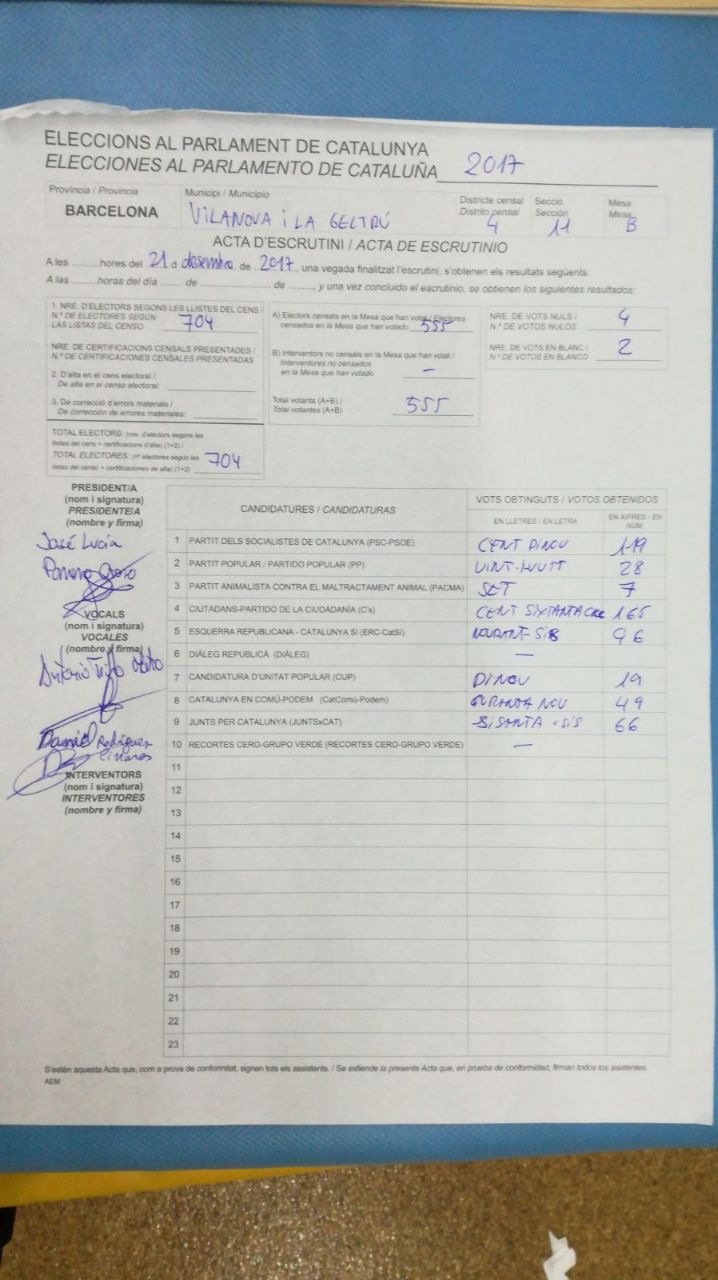 ELECCIONS AL PARLAMENT DE CATALUNYA
ELECCIONES AL PARLAMENTO DE CATALUÑA 2017
Província / Provincia Municipi / Municipio Districte censal Secció Mesa
BARCELONA VILANOVA i LA GELTRÚ Distrito censal Sección Mesa
4 11 B
ACTA D'ESCRUTINI / ACTA DE ESCRUTINIO
A les ..........hores del 21 d desembre de 2017, una vegada finalitzat l'escrutini, s'obtenen els resultats següents:
A las ..........horas del día ....... de .......................... de ........, y una vez concluido el escrutinio, se obtienen los siguientes resultados:
1. NRE. D'ELECTORS SEGONS LES LLISTES DEL CENS /
N.º DE ELECTORES SEGÚN
LAS LISTAS DEL CENSO 704
NRE. DE CERTIFICACIONS CENSALS PRESENTADES /
N.º DE CERTIFICACIONES CENSALES PRESENTADAS
2. D'alta en el cens electoral /
De alta en el censo electoral:
3. De correcció d'errors materials /
De corrección de errores materiales:
TOTAL ELECTORS: (nre. d'electors segons les
llistes del cens + certificacions d'alta) (1+2) /
TOTAL ELECTORES: (nº electores según las
listas del censo + certificaciones de alta) (1+2) 704
A) Electors censats en la Mesa que han votat / Electores
censados en la Mesa que han votado 555
B) Interventors no censats en la Mesa que han votat /
Interventores no censados
en la Mesa que han votado –
Total votants (A+B) /
Total votantes (A+B) 555
NRE. DE VOTS NULS /
N.º DE VOTOS NULOS 4
NRE. DE VOTS EN BLANC /
N.º DE VOTOS EN BLANCO 2
PRESIDENT/A
(nom i signatura)
PRESIDENTE/A
(nombre y firma)
José Lucia
VOCALS
(nom i signatura)
VOCALES
(nombre y firma)
Antonio
Daniel Rodríguez
Linares
INTERVENTORS
(nom i signatura)
INTERVENTORES
(nombre y firma)
CANDIDATURES / CANDIDATURAS VOTS OBTINGUTS / VOTOS OBTENIDOS
EN LLETRES / EN LETRA EN XIFRES / EN NÚM
1 PARTIT DELS SOCIALISTES DE CATALUNYA (PSC-PSOE) CENT DINOU 119
2 PARTIT POPULAR / PARTIDO POPULAR (PP) VINT-HUIT 28
3 PARTIT ANIMALISTA CONTRA EL MALTRACTAMENT ANIMAL (PACMA) SET 7
4 CIUTADANS-PARTIDO DE LA CIUDADANÍA (C's) CENT 165
5 ESQUERRA REPUBLICANA - CATALUNYA SÍ (ERC-CatSí) 96
6 DIÀLEG REPUBLICÀ (DIÀLEG) –
7 CANDIDATURA D'UNITAT POPULAR (CUP) DINOU 19
8 CATALUNYA EN COMÚ-PODEM (CatComú-Podem) NOU 49
9 JUNTS PER CATALUNYA (JUNTSxCAT) SISANTA-SIS 66
10 RECORTES CERO-GRUPO VERDE (RECORTES CERO-GRUPO VERDE) –
11
12
13
14
15
16
17
18
19
20
21
22
23
S'estén aquesta Acta que, com a prova de conformitat, signen tots els assistents. / Se extiende la presente Acta que, en prueba de conformidad, firman todos los asistentes.
AEM